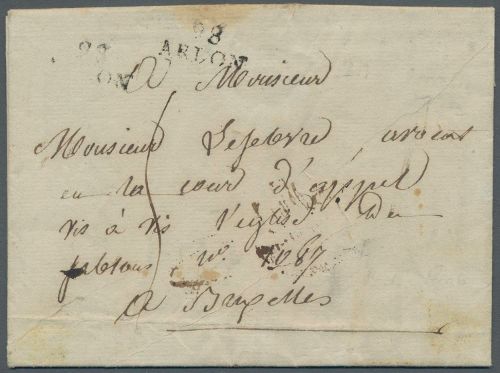 98
ON
98
ARLON
A Monsieur
Monsieur Lefebvre avocat
en la cour d'appel
vis à vis l'eglise du
sablons, n° 1087
A Bruxelles